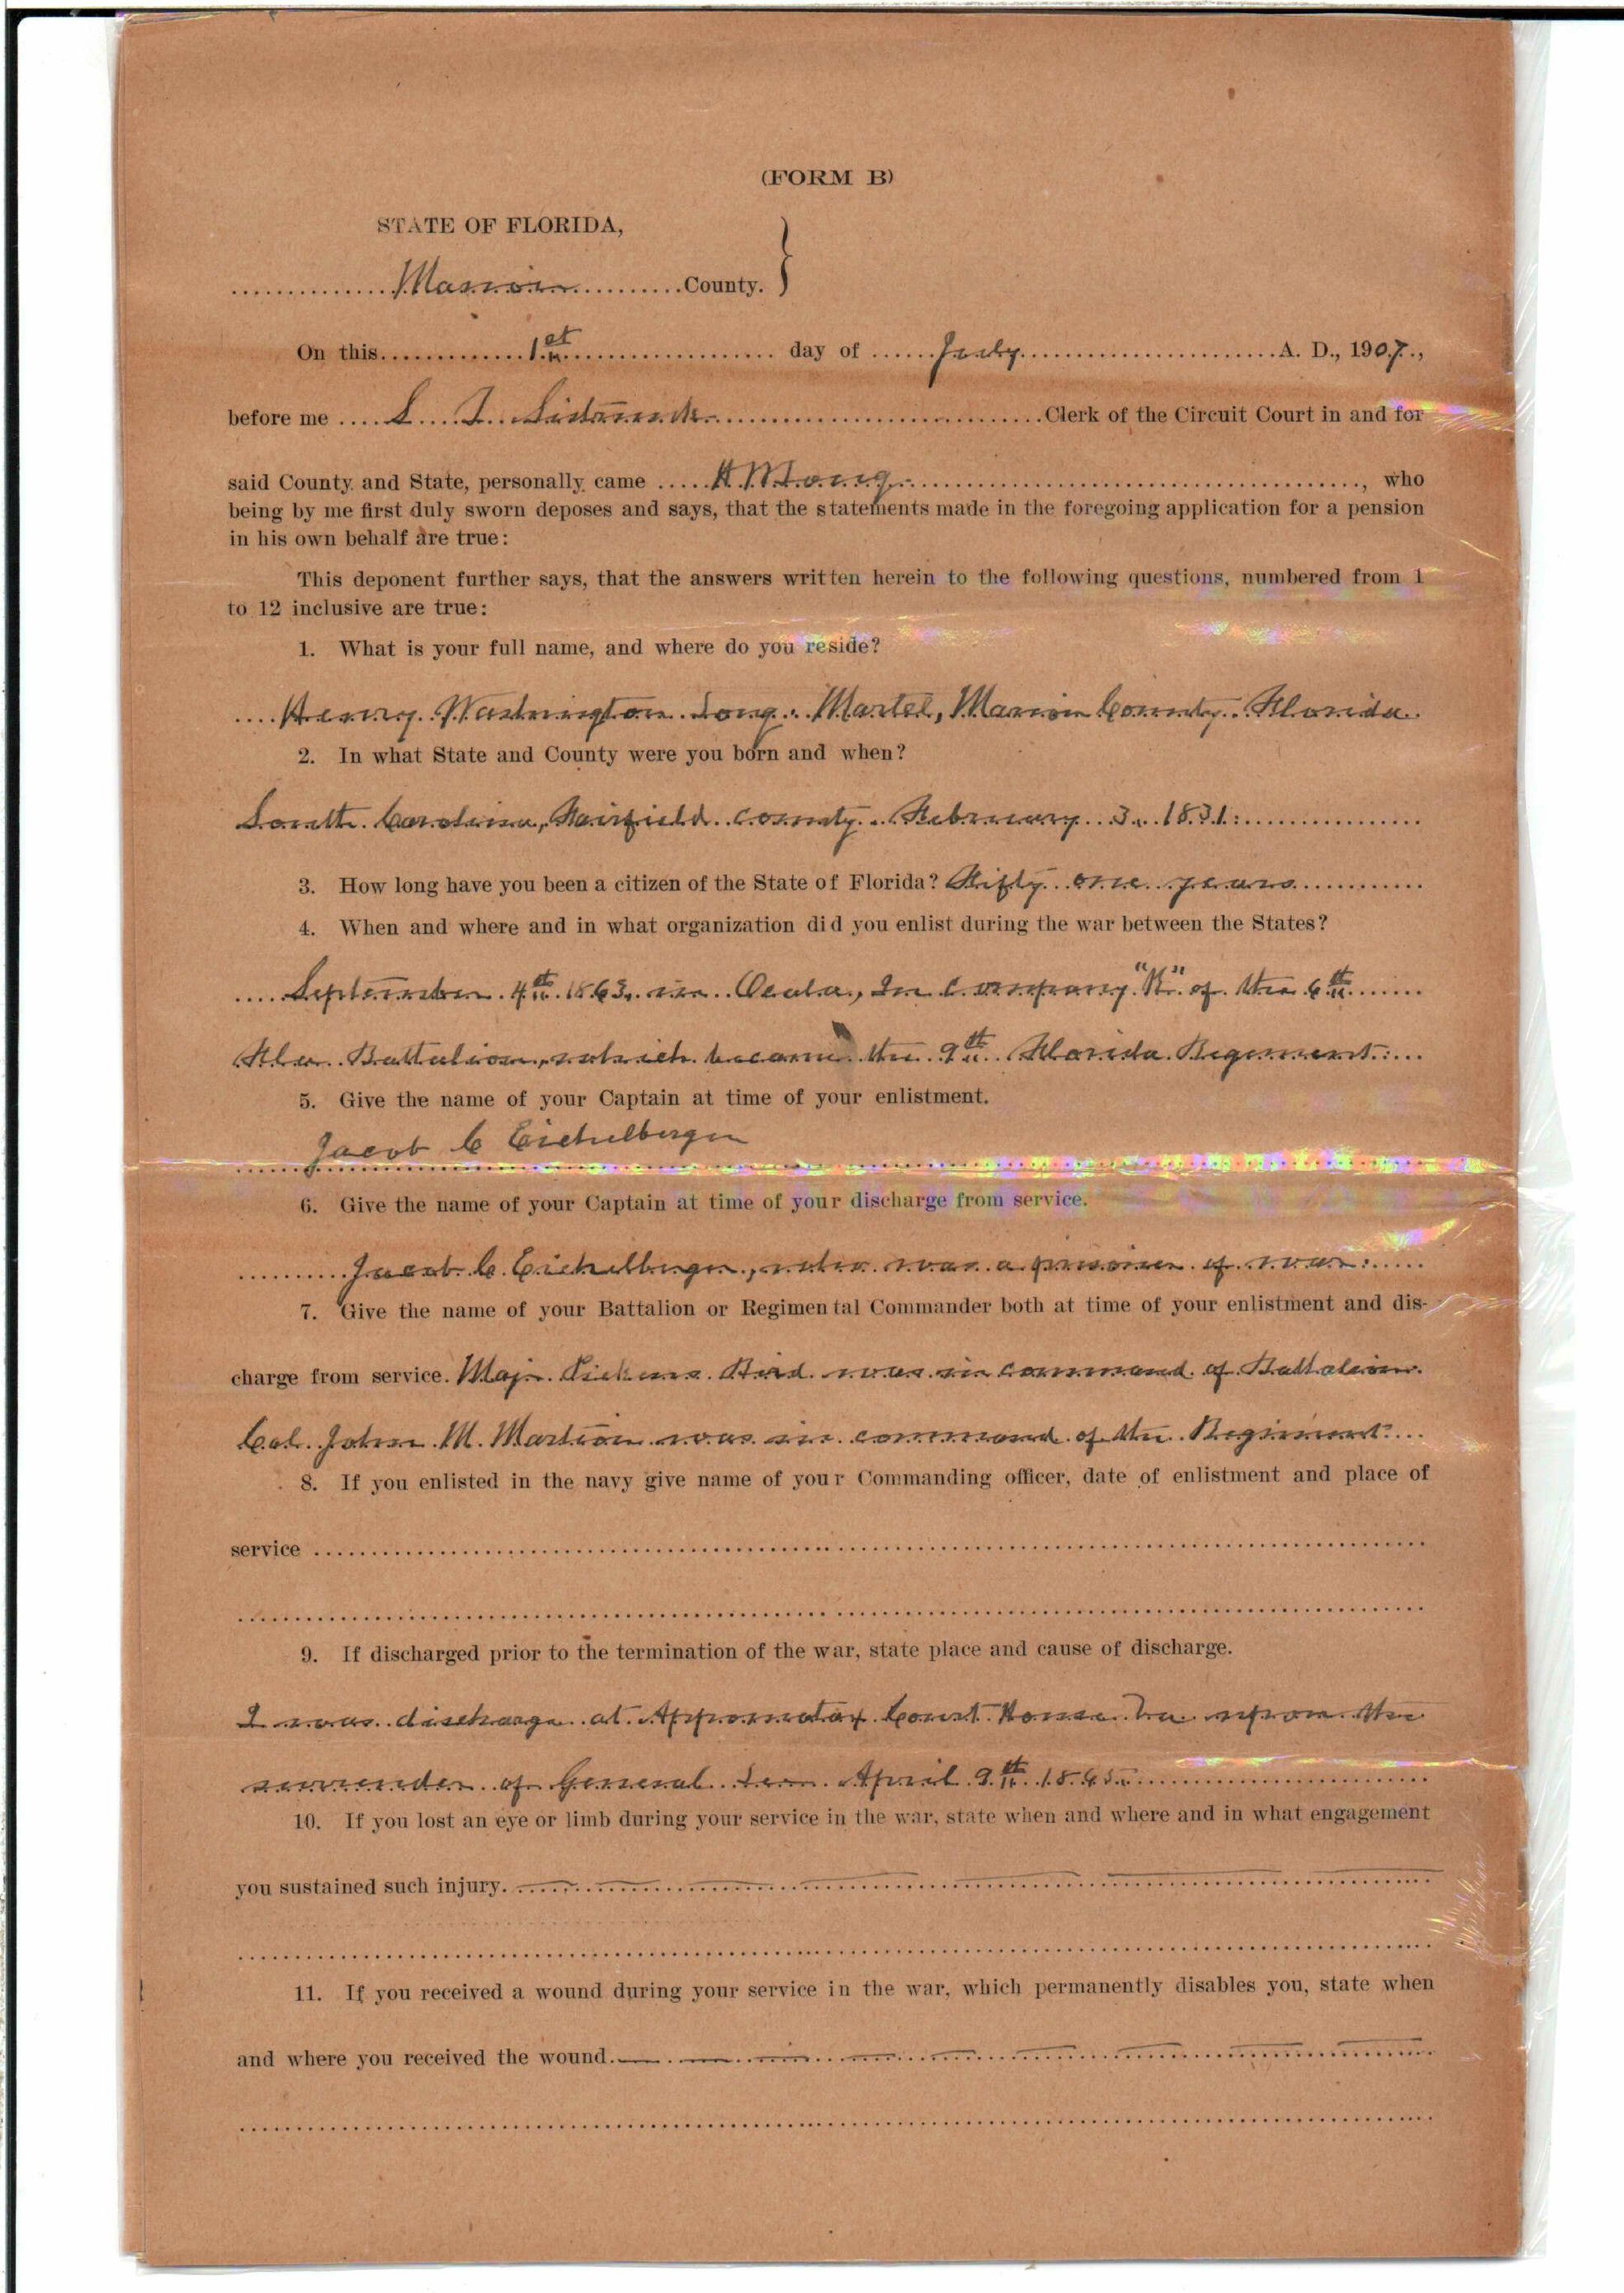 (FORM B)
STATE OF FLORIDA,
Marion County.
On this 1st day of July A. D., 1907,
before me S. T. Sistrunk Clerk of the Circuit Court in and for
said County and State, personally came H. W. Long, who
being by me first duly sworn deposes and says, that the statements made in the foregoing application for a pension
in his own behalf are true:
This deponent further says, that the answers written herein to the following questions, numbered from 1
to 12 inclusive are true:
1. What is your full name, and where do you reside?
Henry Washington Long. Martel, Marion County. Florida.
2. In what State and County were you born and when?
South Carolina, Fairfield County. February 3. 1831.
3. How long have you been a citizen of the State of Florida? Fifty one years
4. When and where and in what organization did you enlist during the war between the States?
September 4th 1863. in Ocala, In Company "K" of the 6th
Fla Battalion, which became the 9th Florida Regement.
5. Give the name of your Captain at time of your enlistment.
Jacob C Eichelberger
6. Give the name of your Captain at time of your discharge from service.
Jacob C. Eichelberger, who was a prisoner of war.
7. Give the name of your Battalion or Regimental Commander both at time of your enlistment and dis-
charge from service. Maj. Pickens Bird was in command of Battalion.
Col. John M. Martion was in command of the Regiment.
8. If you enlisted in the navy give name of your Commanding officer, date of enlistment and place of
service
9. If discharged prior to the termination of the war, state place and cause of discharge.
I was discharge at Appomatox Court House Va upon the
surrender of General Lee April 9th 1865.
10. If you lost an eye or limb during your service in the war, state when and where and in what engagement
you sustained such injury.
11. If you received a wound during your service in the war, which permanently disables you, state when
and where you received the wound.